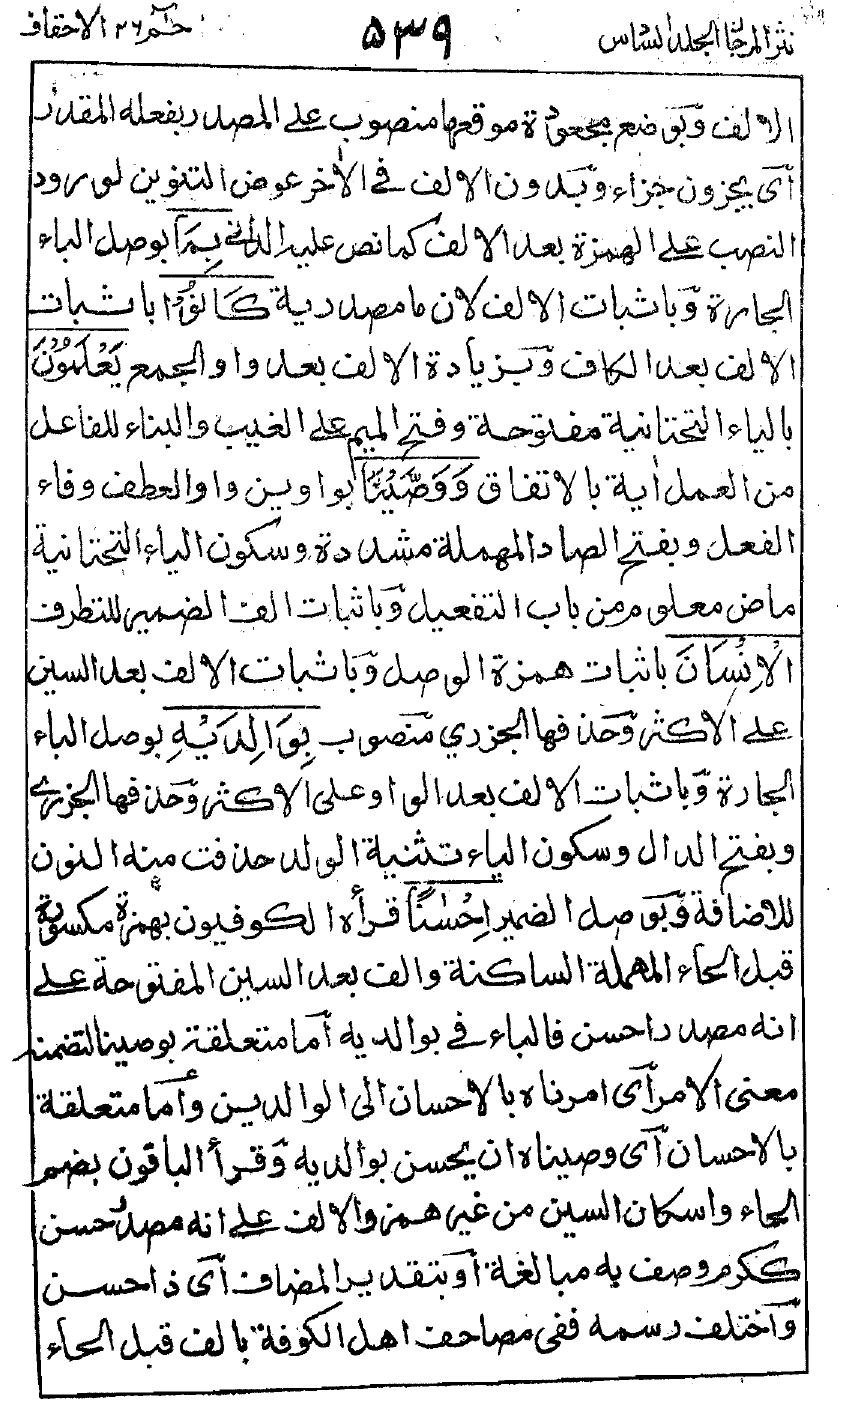 نثر المرجان المجلد السادس ٥٣٩ حٰمٓ ٢٦ الاحقاف
الالف وبوضع مجعودة موقعها منصوب على المصدر بفعله المقدر
أى يجزون جزاء وبدون الالف فى الأخر عوض التنوين لورود
النصب على الهمزة بعد الالف كما نص عليه الدانى بِمَا بوصل الباء
الجارة وباثبات الالف لان ما مصدرية كَانُوْا باثبات
الالف بعد الكاف وبزيادة الالف بعد واو الجمع يَعْمَلُوْنَ
بالياء التحتانية مفتوحة وفتح الميم على الغيب والبناء للفاعل
من العمل أية بالاتفاق وَوَصَّيْنَا بواوين واو العطف وفاء
الفعل وبفتح الصاد المهملة مشددة وسكون الياء التحتانية
ماض معلوم من باب التفعيل وباثبات الف الضمير للتطرف
الْاِنْسَانَ باثبات همزة الوصل وباثبات الالف بعد السين
على الاكثر وحذفها الجزرى منصوب بِوَالِدَيْهِ بوصل الباء
الجارة وباثبات الالف بعد الواو على الاكثر وحذفها الجزرى
وبفتح الدال وسكون الياء تثنية الوالد حذفت منه النون
للاضافة وبوصل الضمير اِحْسٰنًا قرأه الكوفيون بهمزة مكسورة
قبل الحاء المهملة الساكنة والف بعد السين المفتوحة على
انه مصدر احسن فالباء فى بوالديه أما متعلقة بوصينا لتضمنه
معنى الامر أى امرناه بالاحسان الى الوالدين وأما متعلقة
بالاحسان أى وصيناه ان يحسن بوالديه وقرأ الباقون بضم
الحاء واسكان السين من غير همز والالف على انه مصدر حسن
ككرم وصف به مبالغة أو بتقدير المضاف أى ذا حسن
واختلف رسمه ففى مصاحف اهل الكوفة بالف قبل الحاء